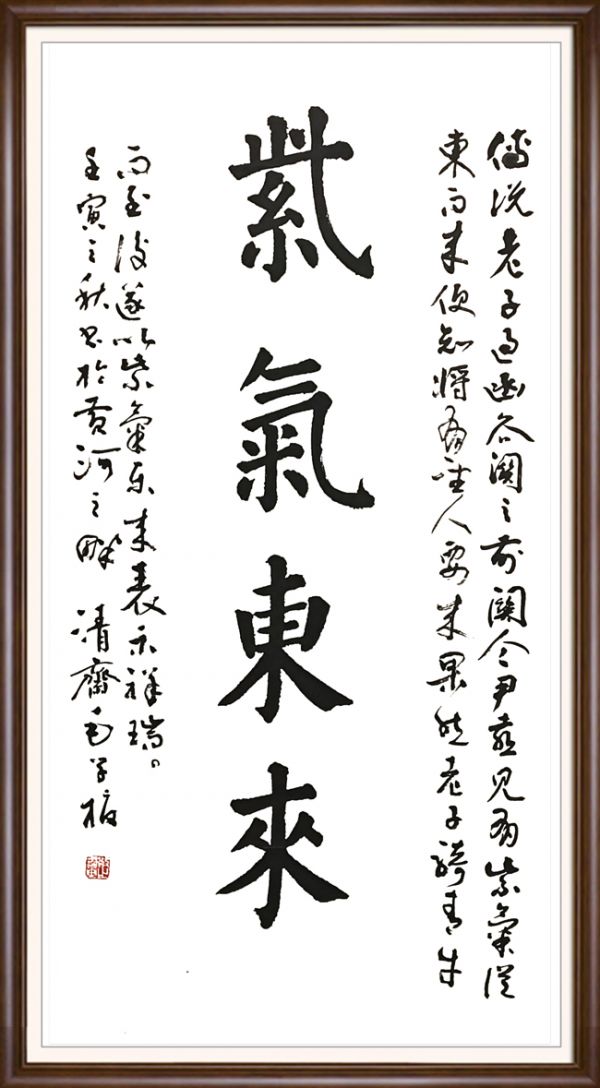 傳説老子過函谷關之前關令尹喜見有紫氣從
東而來便知將有聖人要來果然老子騎青牛
紫氣東來
而至後遂以紫氣東來表示祥瑞。
壬寅之秋書於黄河之畔 清齋毛学